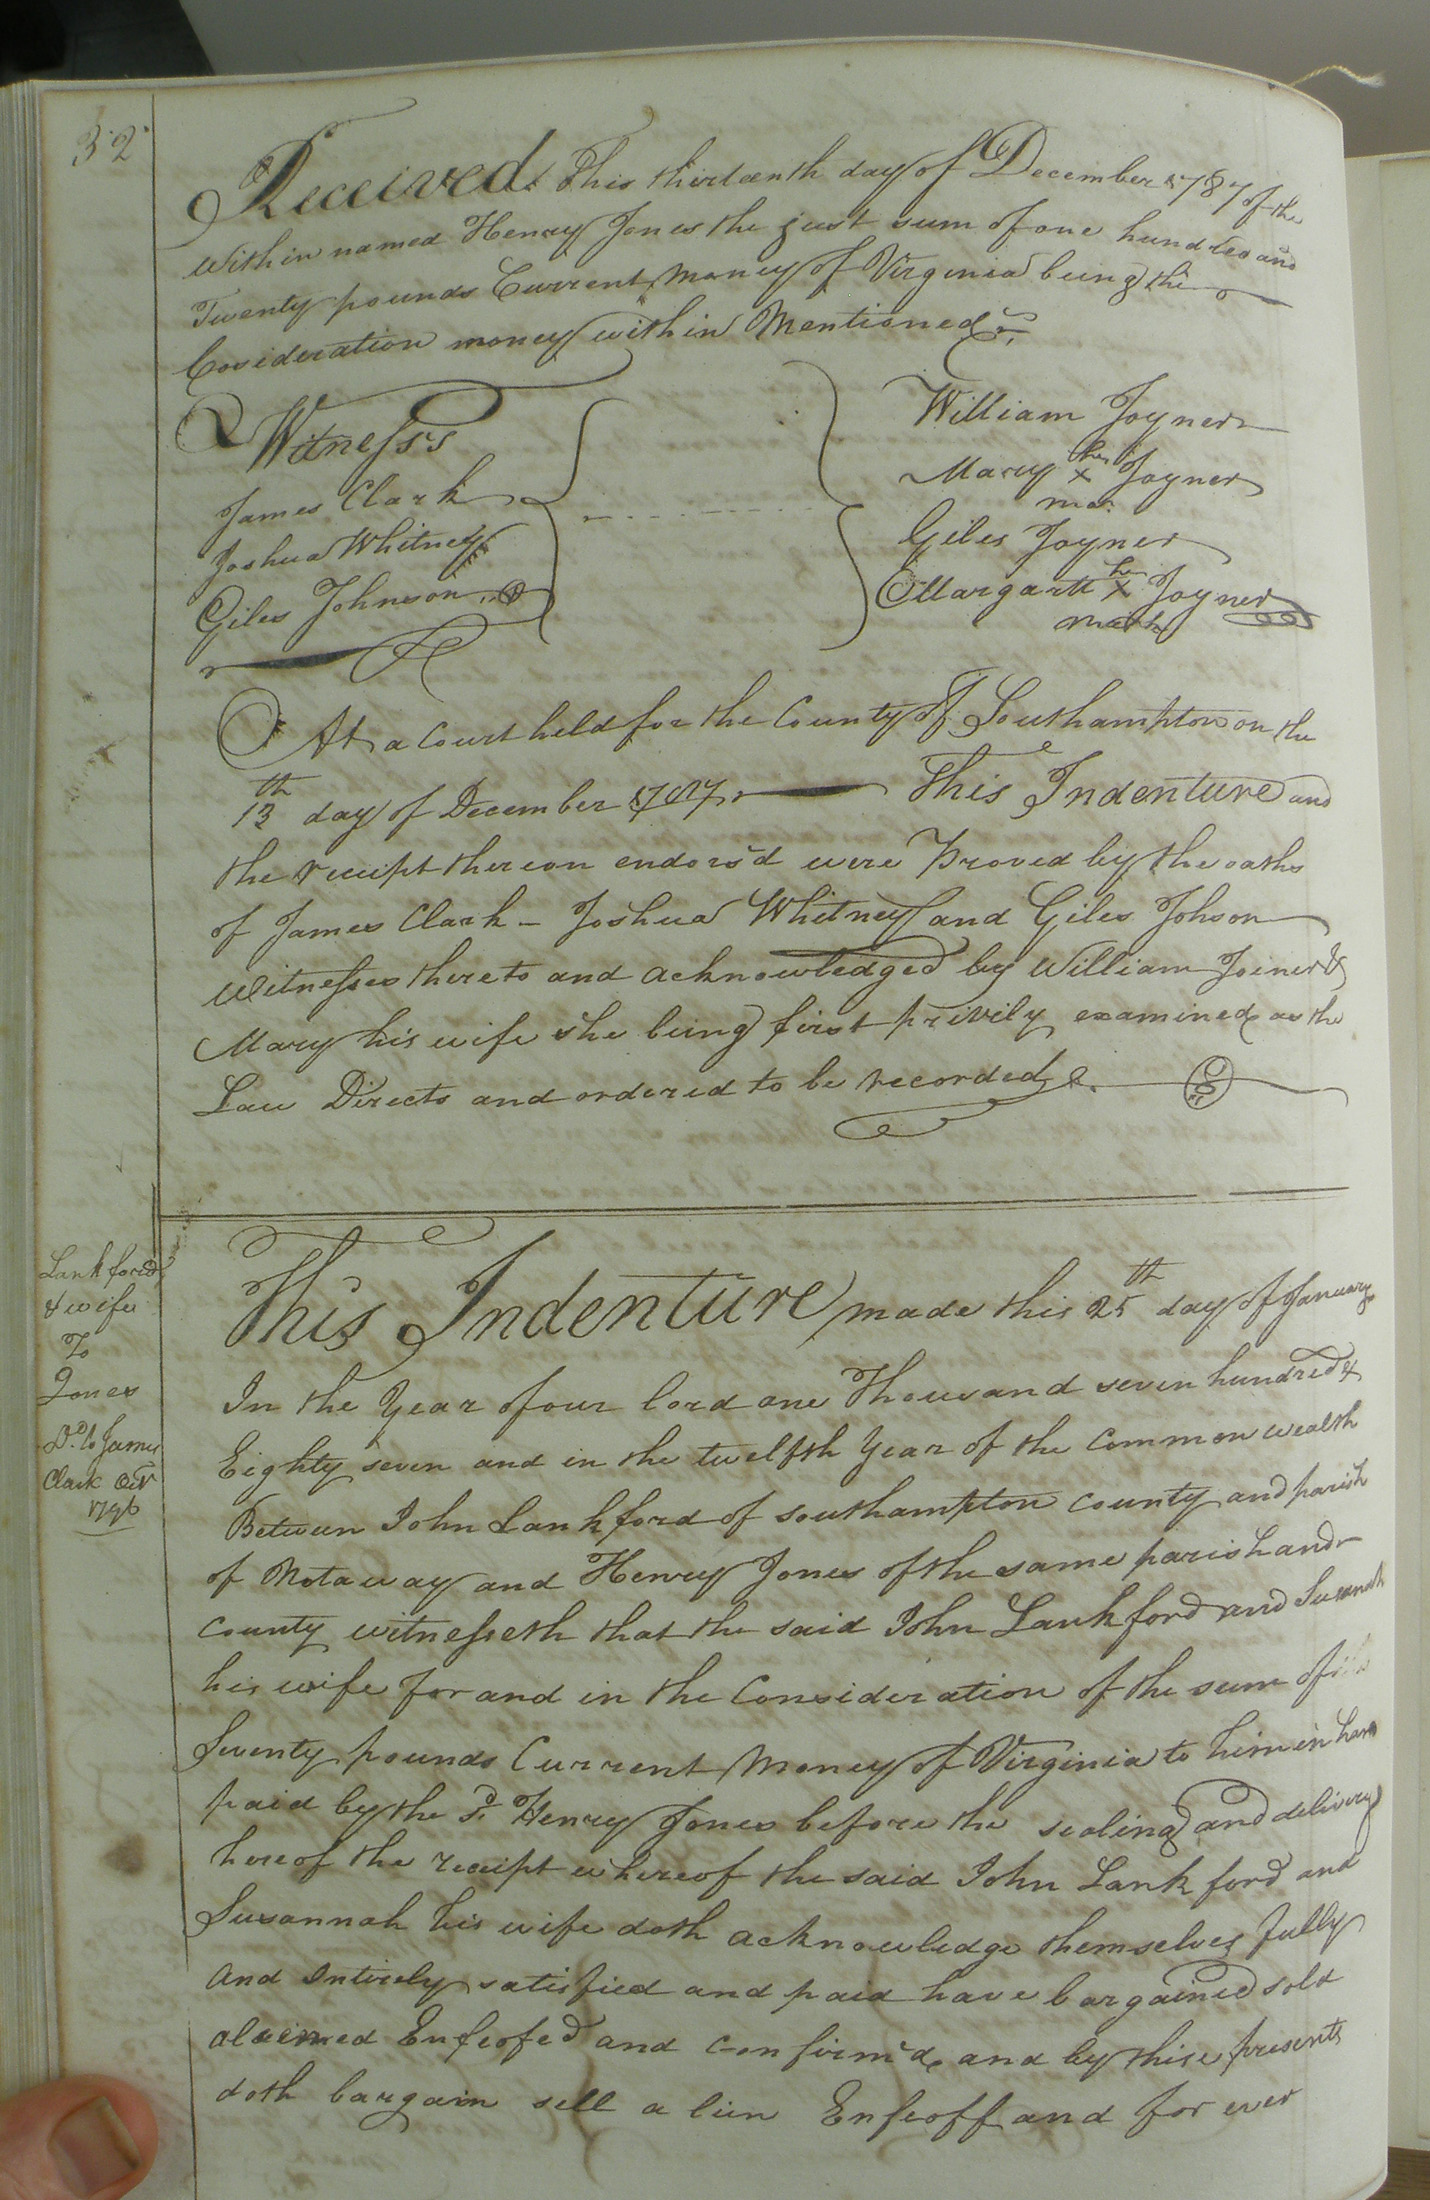 32
Received This thirteenth day of December 1787 of the
within named Henry Jones the just sum of one hundred and
Twenty pounds Current Money of Virginia being the
Cosideration money within Mentioned
Witness's
James Clark
Joshua Whitney
Giles Johnson
William Joyner
Mary her X mark Joyner
Giles Joyner
Margarett her X mark Joyner
At a Court held for the County of Southampton on the
13th day of December 1787 This Indenture and
the receipt thereon endors'd were Proved by the oaths
of James Clark - Joshua Whitney and Giles Johson
Witnesses thereto and acknowledged by William Joiner &
Mary his wife she being first privily examined as the
Law Directs and ordered to be recorded.
Lankford
& wife
To
Jones
D.d to James
Clark Oct
1796
This Indenture made this 25th day of January
In the Year of our lord one Thousand seven hundred &
Eighty seven and in the twelfth Year of the Common wealth
Between John Lankford of Southampton County and parish
of Notaway and Henry Jones of the same parish and
County witnesseth that the said John Lankford and Susanah
his wife for and in the Consideration of the sum of
Seventy pounds Current Money of Virginia to him in hand
paid by the sd. Henry Jones before the sealing and delivery
hereof the receipt whereof the said John Lankford and
Susannah his wife doth acknowledge themselves fully
and Intirely satisfied and paid have bargained sold
aliened Enfeofed and Confirm'd and by these presents
doth bargain sell alien Enfeoff and for ever